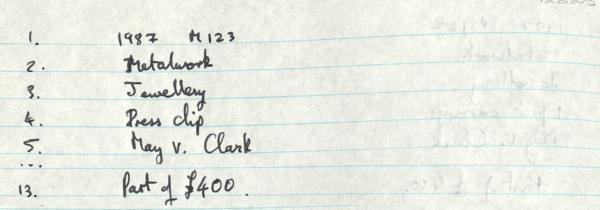 1. 1987 M123
2. Metalwork
3. Jewellery
4. Press clip
5. May v. Clark
...
13. Part of £400.